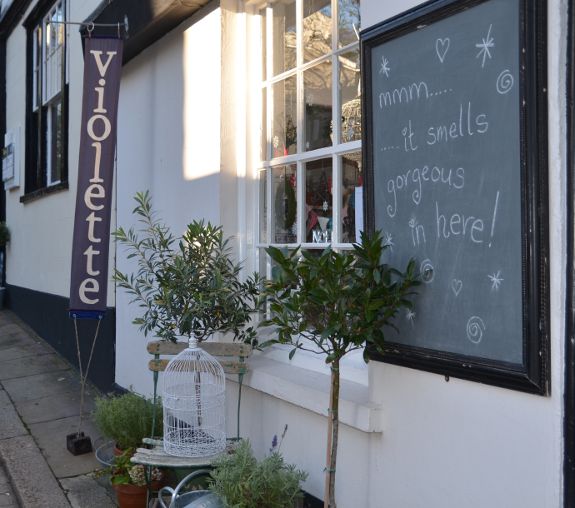 violette
mmm.....
.....it smells
gorgeous
in here!